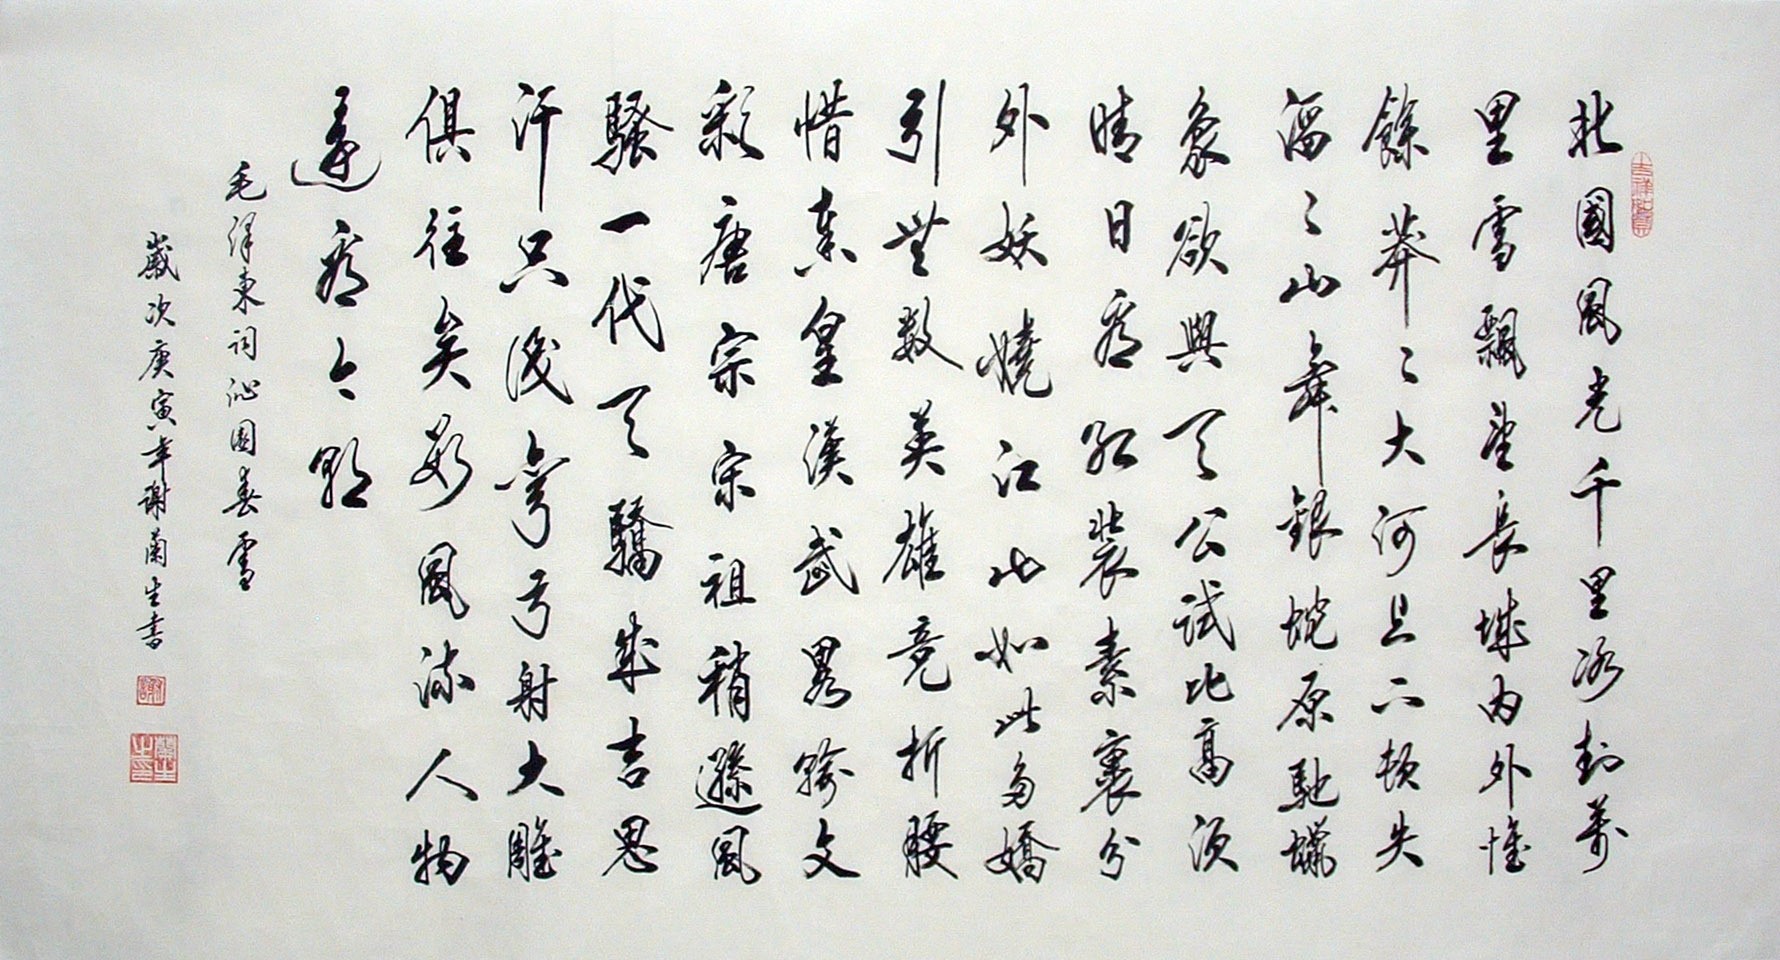 北國風光千里冰封萬
里雪飄望長城内外惟
餘莽々大河上下頓失
滔々山舞銀蛇原馳蠟
象欲與天公試比高須
晴日看紅裝素裹分
外妖嬈江山如此多嬌
引無數英雄竞折腰
惜秦皇漢武畧輸文
彩唐宗宋祖稍遜風
騷一代天驕成吉思
汗只識彎弓射大雕
俱往矣數風流人物
還看今朝
毛澤東詞沁園春雪
歲次庚寅年謝蘭生書
吉祥如意
謝
蘭生之印